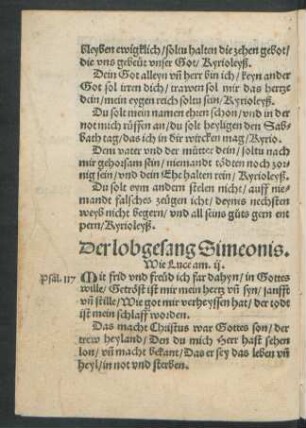 bleyben ewigklich/ soltu halten die zehen gebot/
die vns gebeüt vnser Got/ Kyrioleyß.
Dein Got alleyn vñ herr bin ich/ keyn ander
Got sol irren dich/ trawen sol mir das hertze
dein/ mein eygen reich soltu sein/ Kyrioleyß.
Du solt mein namen ehren schon/ vnd in der
not mich rüffen an/ du solt heyligen den Sab-
bath tag/ das ich in dir würcken mag/ Kyrio.
Dem vater vnd der muter dein/ soltu nach
mir gehorsam sein/ niemandt tödten noch zor-
nig sein/ vnd dein Ehe halten rein/ Kyrioleyß.
Du solt eym andern stelen nicht/ auff nie-
mandt falsches zeügen icht/ deynis nechsten
weyb nicht begern/ vnd all seins güts gern ent
pern/ Kyrioleyß.
Der lobgesang Simeonis.
Wie Luce am. ij.
Psal. 117 Mit frid vnd freüd ich far dahyn/ in Gottes
wille/ Getröst ist mir mein hertz vñ syn/ sansfft
vñ stille/ Wie got mir verheyssen hat/ der todt
ist mein schlaff worden.
Das macht Christus war Gottes son/ der
trew heyland/ Den du mich Herr hast sehen
lon/ vñ macht bekant/ Das er sey das leben vñ
heyl/ in not vnd sterben.